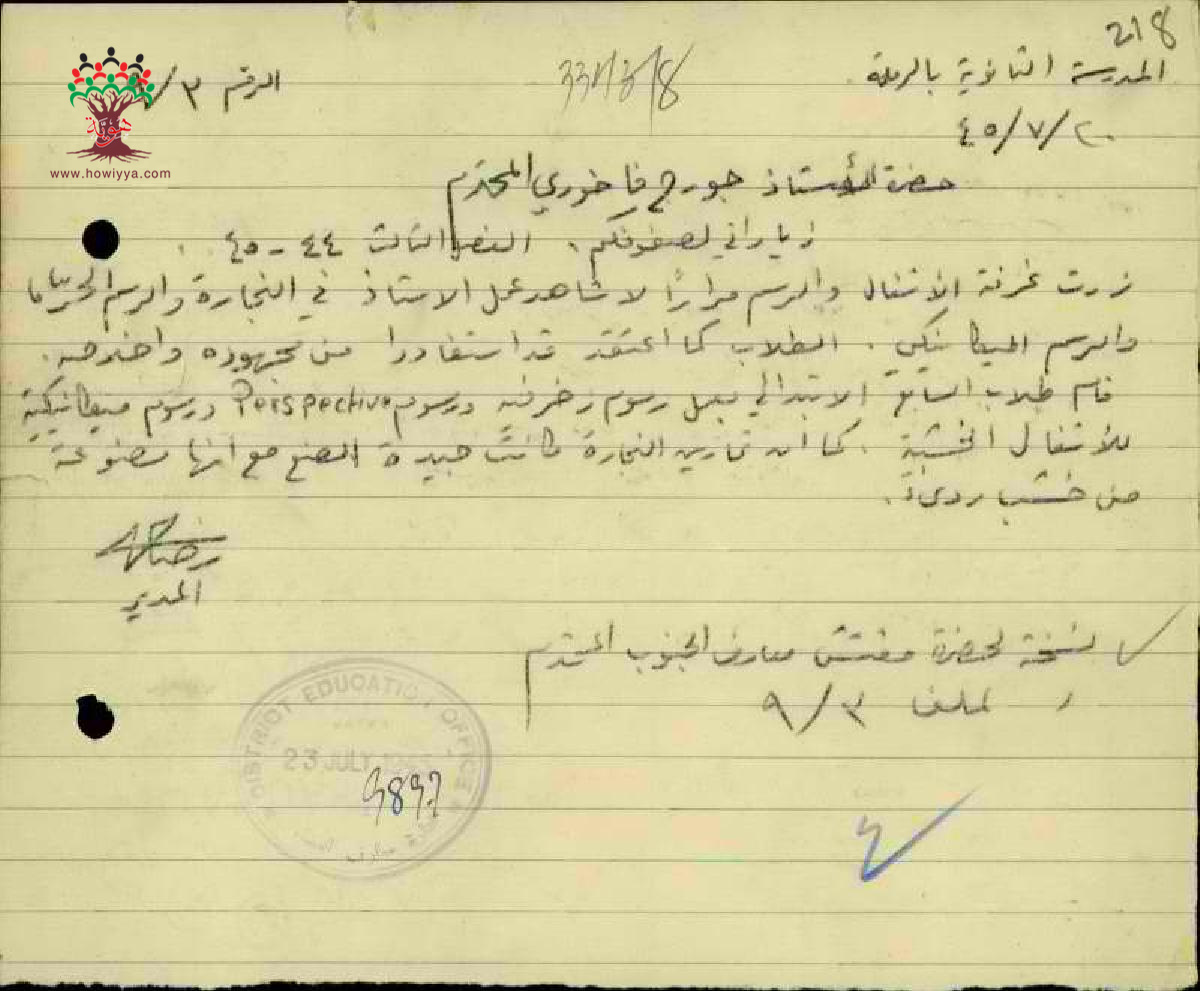 218
المدرسة الثانوية بالرملة
334/5/8
الرقم ٩/٣
٤٥/٧/٢٠
www.howiyya.com
حضرة الأستاذ جورج فاخوري المحترم
زياراتي لصفوفكم . الفصل الثالث ٤٤ - ٤٥ .
زرت غرفة الأشغال والرسم مرارًا لاشاهد عمل الاستاذ في النجارة والرسم الحر
والرسم الميكانيكي . الطلاب كما اعتقد قد استفادوا من مجهوده واخلاصه .
قام طلاب السابع الابتدائي بعمل رسوم زخرفية ورسوم Perspective ورسوم ميكانيكية
للأشغال الخشبية . كما ان تمارين النجارة كانت جيدة الصنع مع انها مصنوعة
من خشب رديء .
المدير
نسخة لحضرة مفتش معارف الجنوب المحترم
لملف ٩/٣
DISTRICT EDUCATION OFFICE
23 JULY 1945